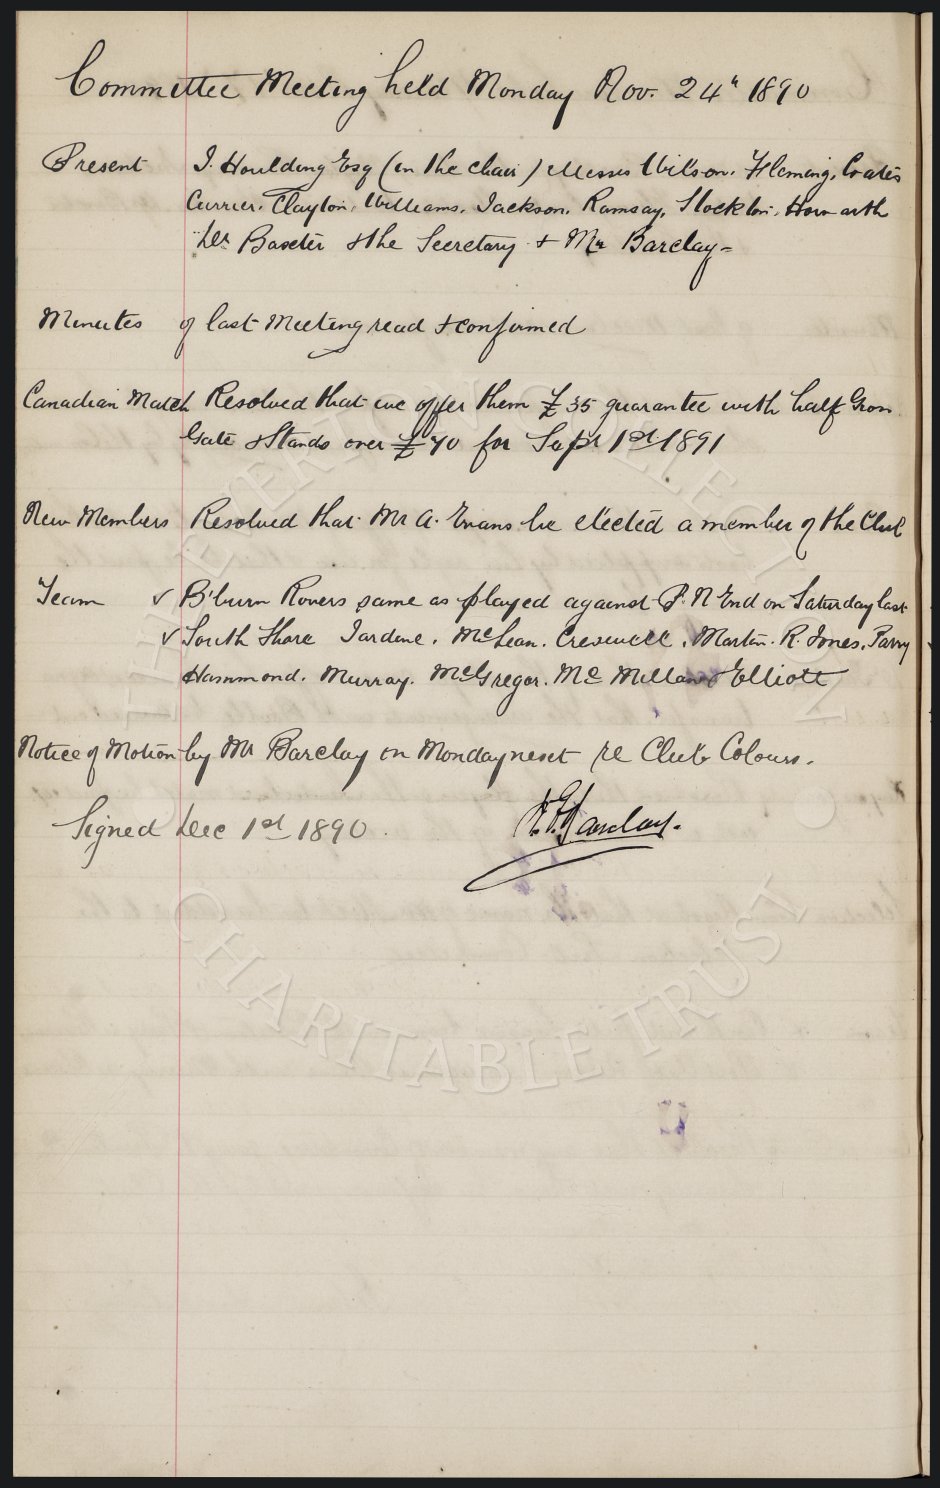 Committee Meeting held Monday Nov. 24th 1890
Present J. Houlding Esq (in the chair) Messrs Wilson. Fleming. Coates
Currier. Clayton. Williams. Jackson. Ramsay. Stockton. Howarth
Dr Baxter & the Secretary & Mr Barclay -
Minutes of last Meeting read & confirmed
Canadian Match Resolved that we offer them £35 guarantee with half Gross
Gate & Stands over £70 for Sept 1st 1891
New Members Resolved that Mr A. Evans be elected a member of the Club
Team ✓ B'burn Rovers same as played against P. N End on Saturday last
✓ South Shore Jardine. McLean. Cresswell. Martin. R. Jones. Parry
Hammond. Murray. McGregor. Mc Millan & Elliott
Notice of Motion by Mr Barclay on Monday next re Club Colours.
Signed Dec 1st 1890. Barclay.
THE EVERTON COLLECTION
CHARITABLE TRUST